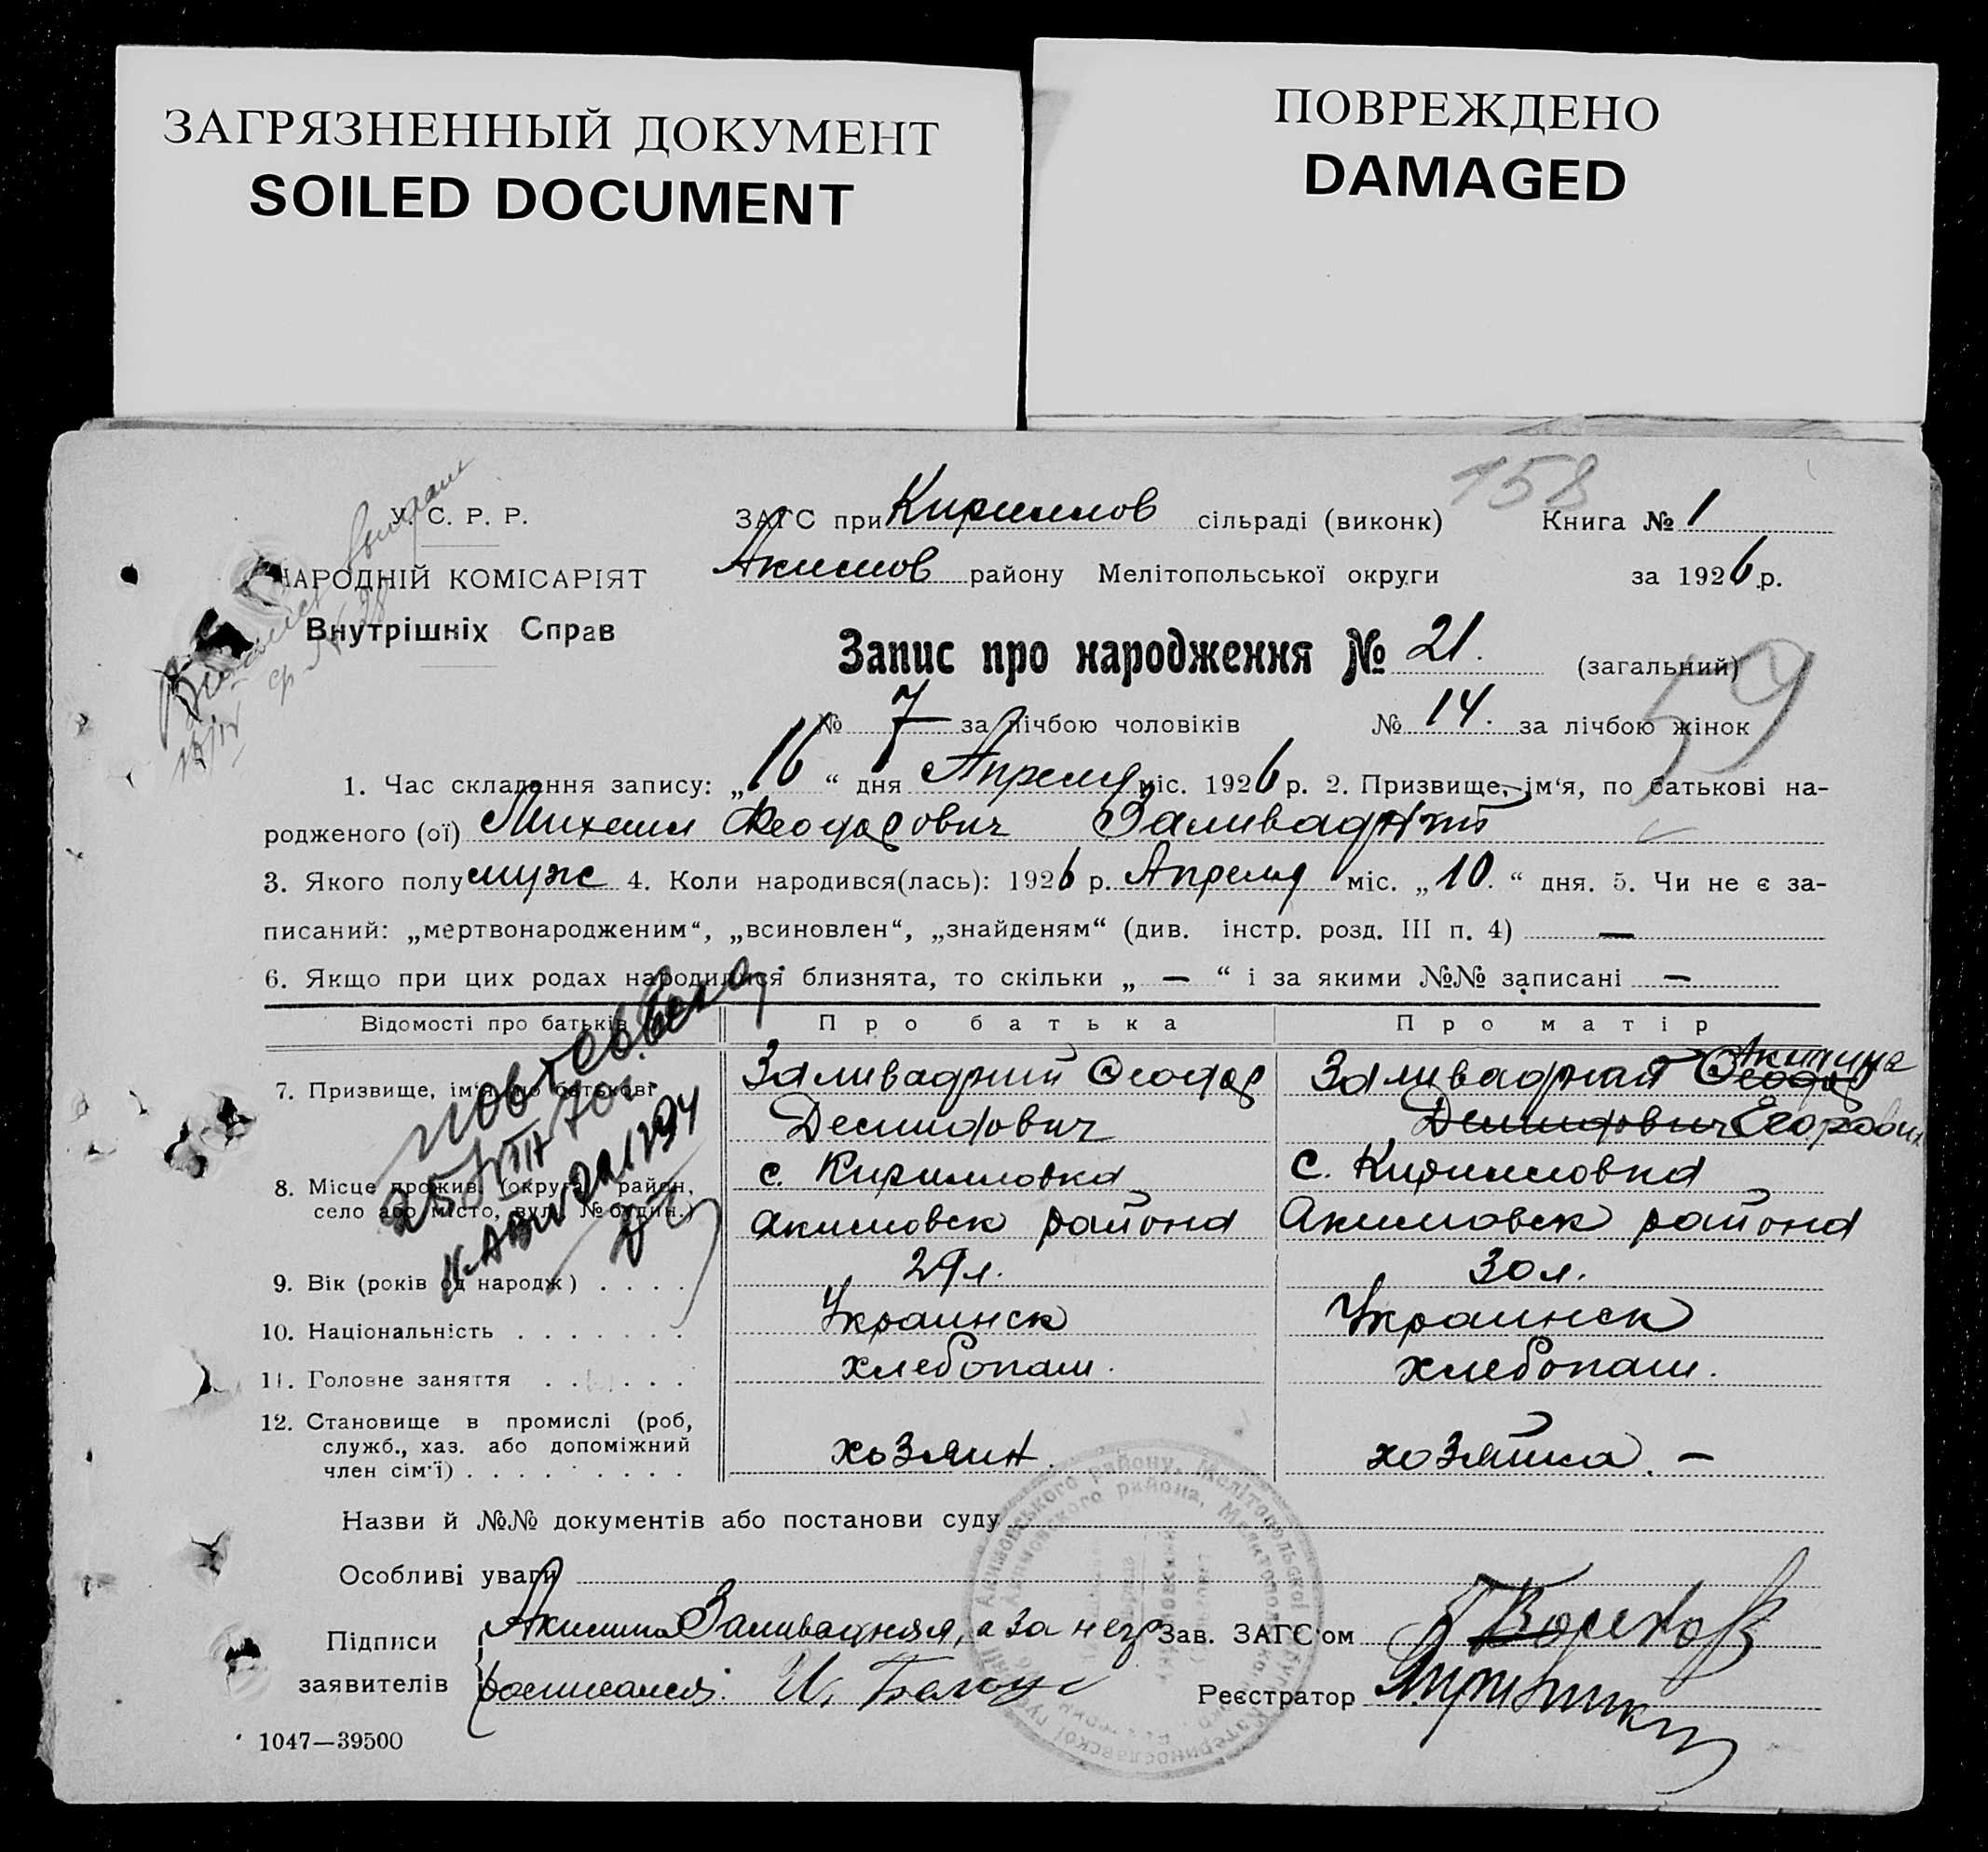 ЗАГРЯЗНЕННЫЙ ДОКУМЕНТ
SOILED DOCUMENT
ПОВРЕЖДЕНО
DAMAGED
158
У. С. Р. Р.
НАРОДНІЙ КОМІСАРІЯТ
Внутрішніх Справ
ЗАГС при Кириллов сільраді (виконк) Книга № 1
Акимов району Мелітопольської округи за 1926 р.
Запис про народження № 21. (загальний)
59
№ 7 за лічбою чоловіків № 14. за лічбою жінок
1. Час складання запису: „16“ дня Апреля міс. 1926 р. 2. Призвище, ім‘я, по батькові на-
родженого (ої) Михаил Феодорович Заливадний
3. Якого полу муж 4. Коли народився(лась): 1926 р. Апреля міс. „10.“ дня. 5. Чи не є за-
писаний: „мертвонародженим“, „всиновлен“, „знайденям“ (див. інстр. розд. III п. 4) —
6. Якщо при цих родах народилися близнята, то скільки „ — “ і за якими №№ записані —
Відомості про батьків Про батька Про матір
повт. св.
7. Призвище, ім‘я, по батькові Заливадний Феодор Заливадная Феодор Акилина
Демидович Демидович Егоровн
8. Місце прожив. (округа, район, с. Кирилловка с. Кирилловка
село або місто, вул. № будин.) Акимовск района Акимовск района
9. Вік (років од народж) . . . . 29 л. 30 л.
10. Національність . . . . . . . Украинск Украинск
11. Головне заняття . . . . . . хлебопаш. хлебопаш.
12. Становище в промислі (роб,
служб., хаз. або допоміжний
член сім‘ї) . . . . . . . . . хозяин. хозяйка. —
Назви й №№ документів або постанови суду
Особливі уваги
Підписи Акилина Заливадная, а за неgr Зав. ЗАГС‘ом
заявителів росписался: И. Белоус Реєстратор
1047—39500